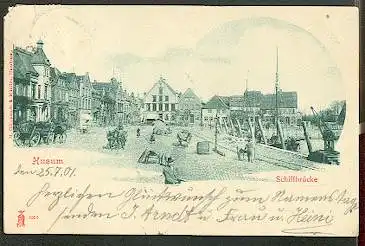 Husum
Schiffbrücke
den 25.7.01
Herzlichen Glückwunsch zum Namenstage
senden J. Arndt u Frau u Heini